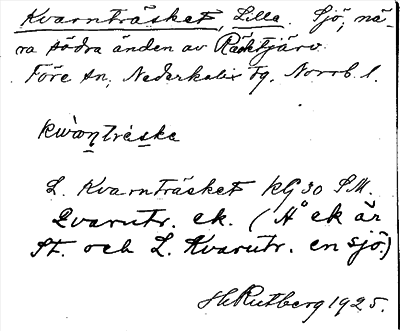 Kvarnträsket, Lilla. Sjö, nä-
ra södra änden av Räktjärv.
Före sn, Nederkalix tg, Norrb. l.
kwàn̲tres̲ke
L. Kvarnträsket KG 30 S.M.
Qvarntr. ek. (Å ek är
St. och L. Kvarntr. en sjö.)
H Rutberg 1925.